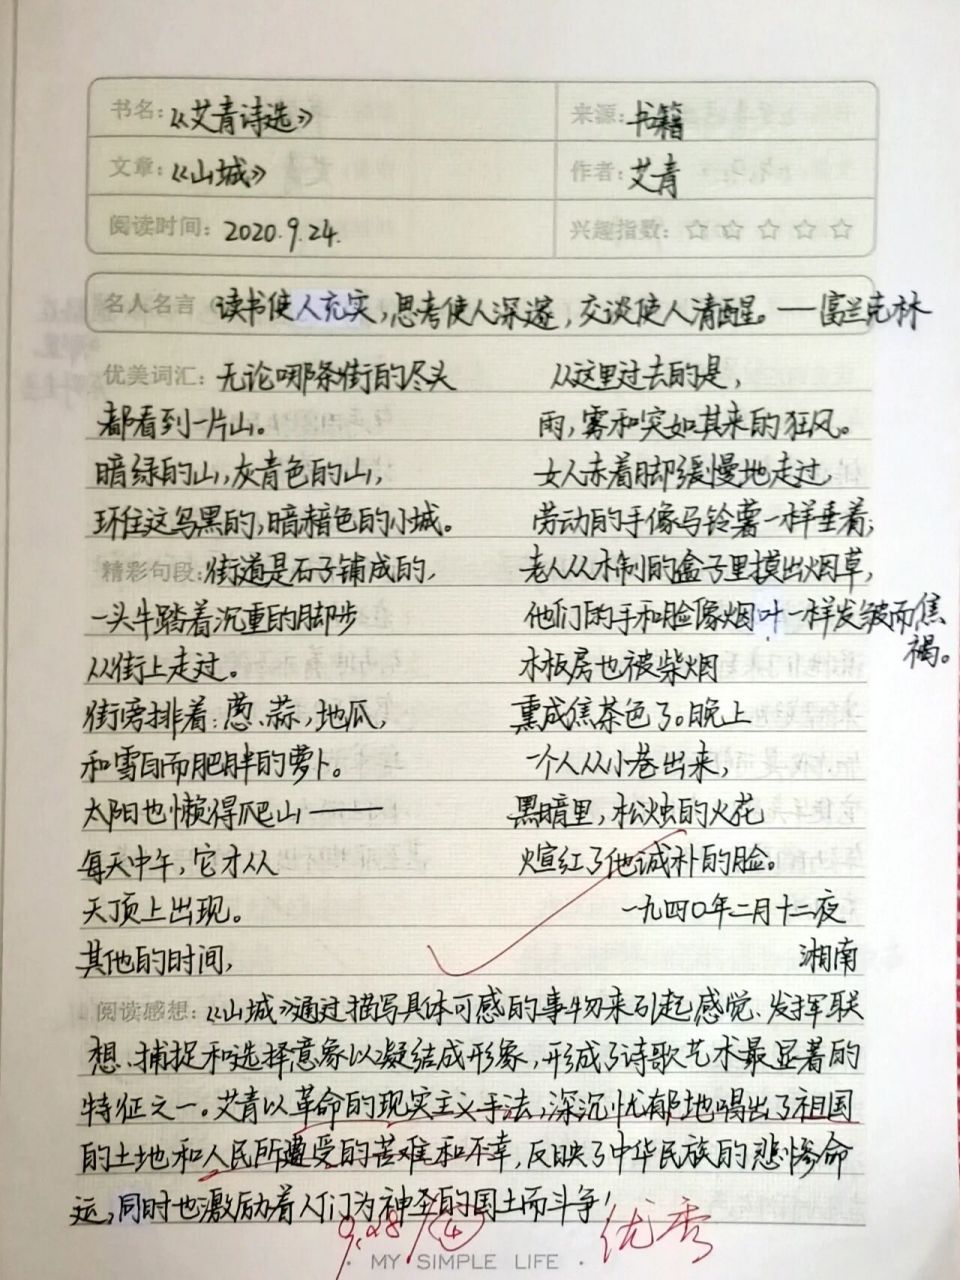 书名：《艾青诗选》
来源：书籍
文章：《山城》
作者：艾青
阅读时间：2020.9.24.
兴趣指数：☆☆☆☆☆
名人名言 读书使人充实，思考使人深邃，交谈使人清醒。——富兰克林
优美词汇：无论哪条街的尽头
都看到一片山。
暗绿的山，灰青色的山，
环住这乌黑的，暗赭色的小城。
精彩句段：街道是石子铺成的，
一头牛踏着沉重的脚步
从街上走过。
街旁排着：葱、蒜，地瓜，
和雪白而肥胖的萝卜。
太阳也懒得爬山——
每天中午，它才从
天顶上出现。
其他的时间，
从这里过去的是，
雨，雾和突如其来的狂风。
女人赤着脚缓慢地走过，
劳动的手像马铃薯一样垂着；
老人从木制的盒子里摸出烟草，
他们的手和脸像烟叶一样发皱而焦
褐。
木板房也被柴烟
熏成焦茶色了。晚上
一个人从小巷出来，
黑暗里，松烛的火花
煊红了他诚朴的脸。
一九四〇年二月十二夜
湘南
阅读感想：《山城》通过描写具体可感的事物来引起感觉、发挥联
想、捕捉和选择意象以凝结成形象，形成了诗歌艺术最显著的
特征之一。艾青以革命的现实主义手法，深沉忧郁地唱出了祖国
的土地和人民所遭受的苦难和不幸，反映了中华民族的悲惨命
运，同时也激励着人们为神圣的国土而斗争！
9.28 ④ 优秀
· MY SIMPLE LIFE ·